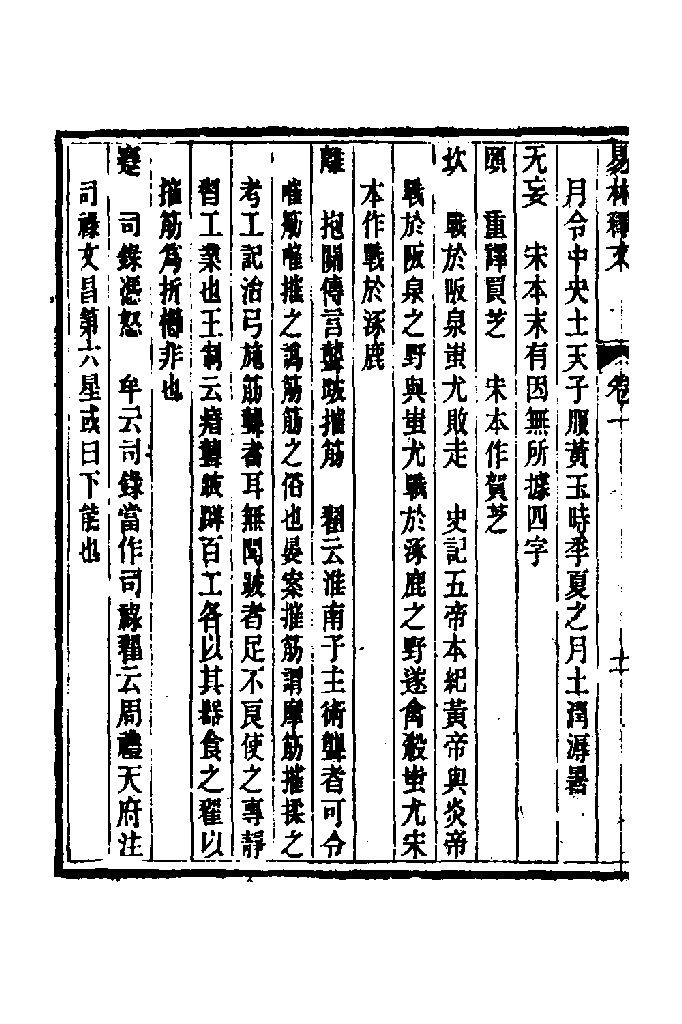 易林釋文 卷一 十
月令中央土天子服黃玉時季夏之月土潤溽暑
无妄 宋本末有因無所據四字
頤 重譯貢芝 宋本作賀芝
坎 戰於阪泉蚩尤敗走 史記五帝本紀黃帝與炎帝
戰於阪泉之野與蚩尤戰於涿鹿之野遂禽殺蚩尤宋
本作戰於涿鹿
離 抱關傳言聾跛摧筋 翟云淮南子主術聾者可令
嗺筋嗺摧之譌筋筋之俗也晏案摧筋謂摩筋摧揉之
考工記治弓施筋聾者耳無聞跛者足不良使之專靜
習工業也王制云瘖聾跛躃百工各以其器食之翟以
摧筋爲折懤非也
蹇 司錄憑怒 牟云司錄當作司祿翟云周禮天府注
司祿文昌第六星或曰下能也